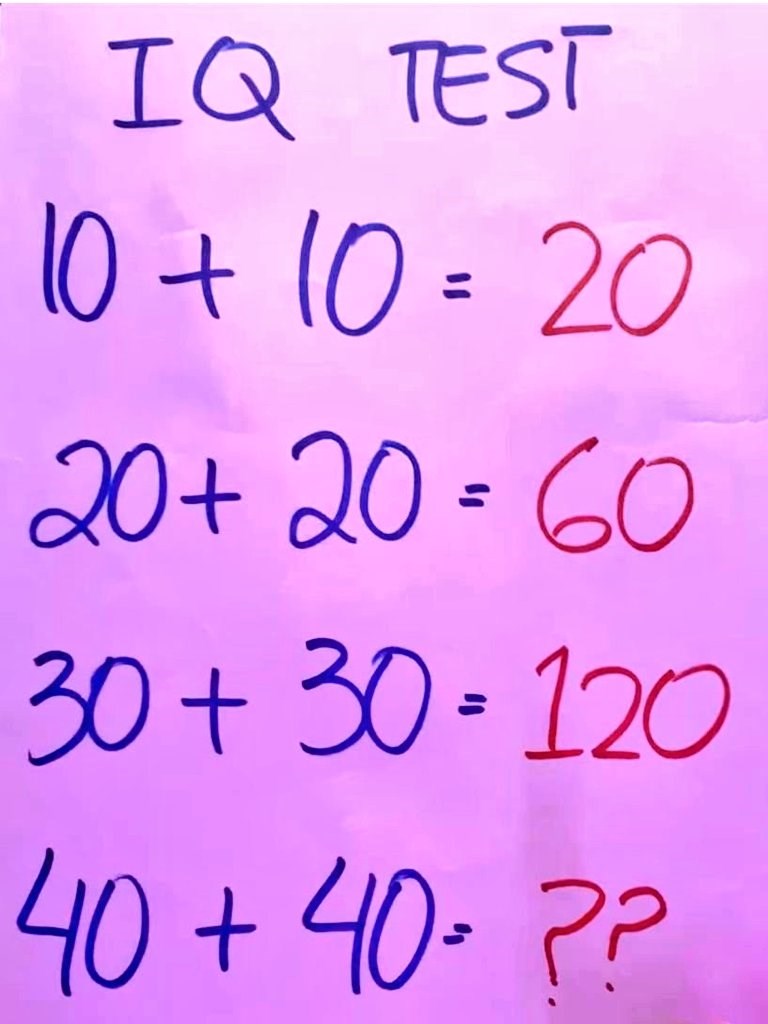 IQ TEST
10 + 10 = 20
20 + 20 = 60
30 + 30 = 120
40 + 40 = ??